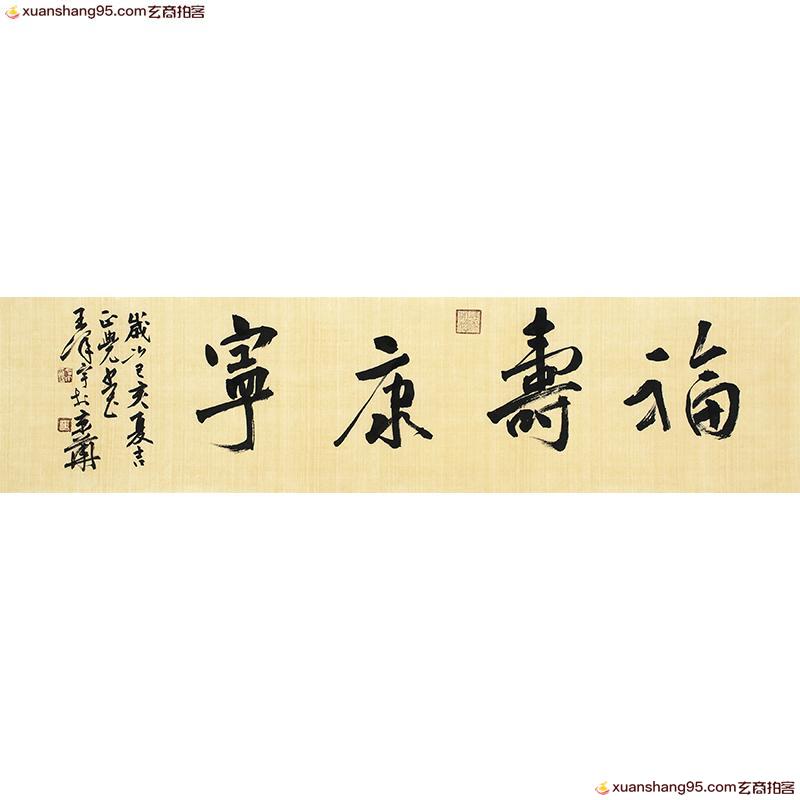 xuanshang95.com玄商拍客
福壽康寧
歲次己亥夏吉
正覺書
王澤宇於京華
xuanshang95.com玄商拍客